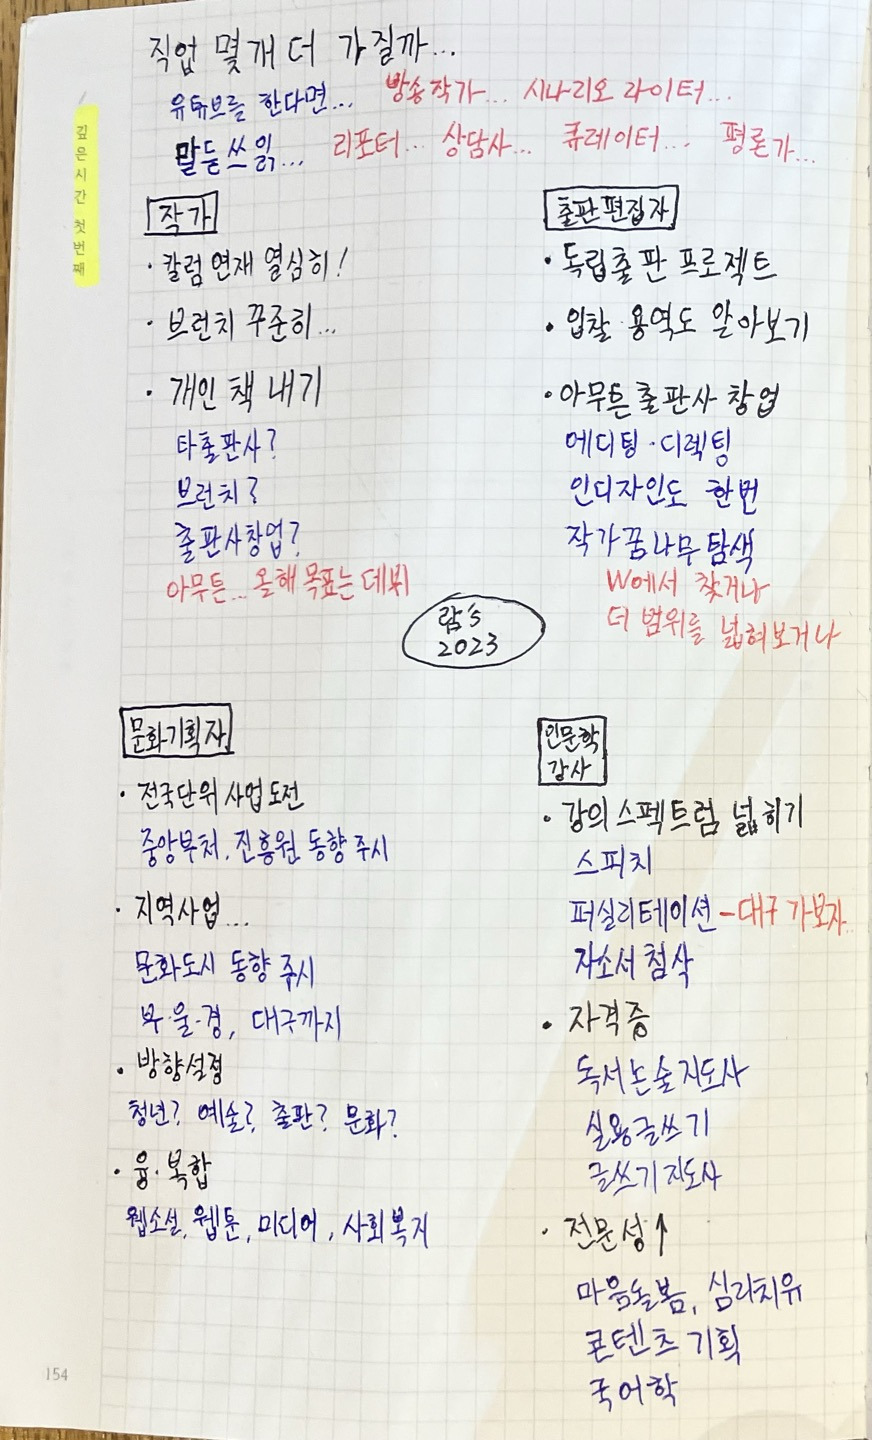 직업 몇개 더 가질까...
유튜브를 한다면... 방송작가... 시나리오 라이터...
말듣쓰읽... 리포터... 상담사... 큐레이터... 평론가...
깊은시간 첫번째
작가
· 칼럼연재 열심히!
· 브런치 꾸준히...
· 개인 책 내기
타출판사?
브런치?
출판사창업?
아무튼... 올해 목표는 데뷔
출판편집자
· 독립출판 프로젝트
· 입찰·용역도 알아보기
· 아무튼출판사 창업
에디팅·디렉팅
인디자인도 한번
작가꿈나무 탐색
W에서 찾거나
더 범위를 넓혀보거나
람's
2023
문화기획자
· 전국단위 사업 도전
중앙부처, 진흥원 동향 주시
· 지역사업...
문화도시 동향 주시
부·울·경, 대구까지
· 방향설정
청년? 예술? 출판? 문화?
· 융·복합
웹소설, 웹툰, 미디어, 사회복지
인문학
강사
· 강의 스펙트럼 넓히기
스피치
퍼실리테이션 - 대구 가보자..
자소서 첨삭
· 자격증
독서논술지도사
실용글쓰기
글쓰기지도사
· 전문성↑
마음돌봄, 심리치유
콘텐츠 기획
국어학
154